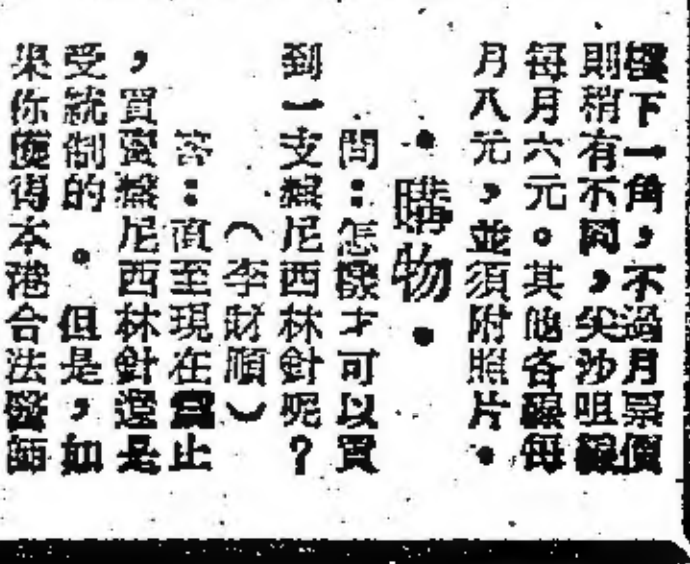 樓下一角，不過月票價
則稍有不同，尖沙咀線
每月六元。其他各線每
月八元，並須附照片。
•購物•
問：怎樣才可以買
到一支盤尼西林針呢？
（李財順）
答：直至現在為止
，買賣盤尼西林針還是
受統制的。但是，如
果你獲得本港合法醫師